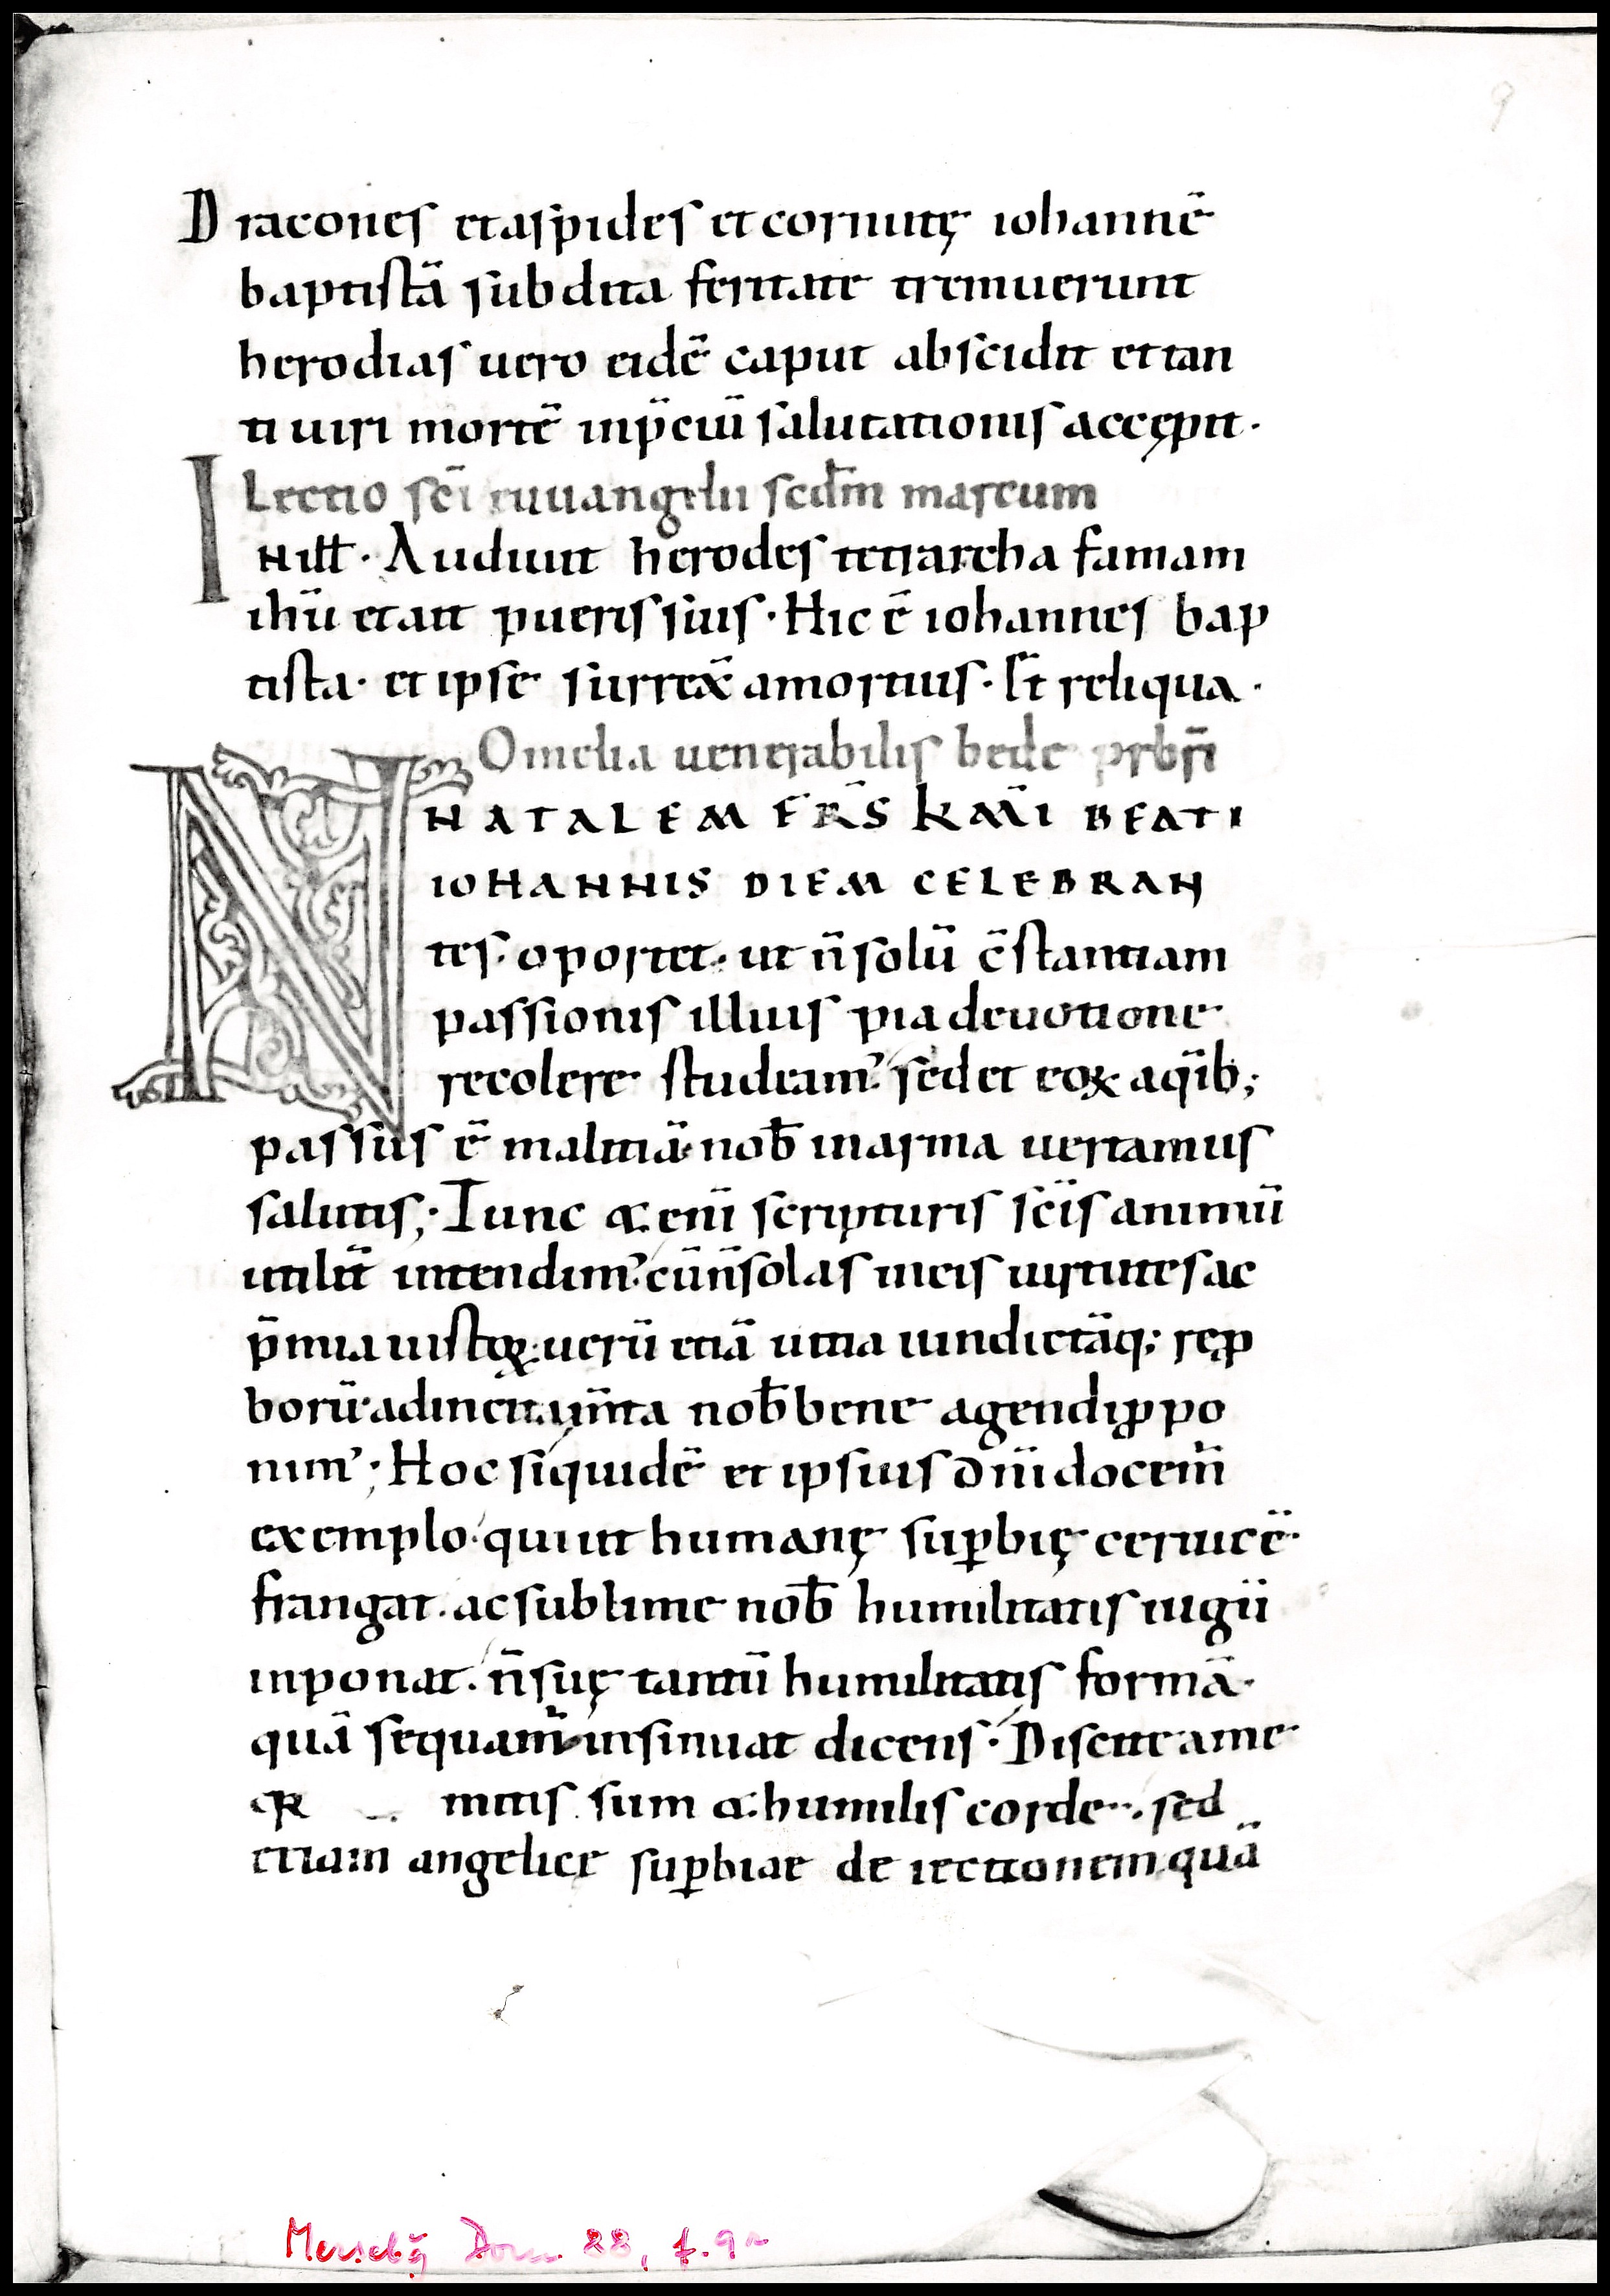 9
Dracones et aspides et cornutę iohannē
baptistā subdita feritate tremuerunt
herodias uero eidē caput abscidit et tan
ti uiri mortē in p̄ciū salutationis accępit·
Lectio sc̄i euuangelii scd̄m marcum
IN ill̄t· Audiuit herodes tetrarcha famam
ihū et ait pueris suis· Hic ē iohannes bap
tista· et ipse surrex̄ a mortuis· Et reliqua·
Omelia uenerabilis bede prb̄ri
NATALEM FR̄S KMĪ BEATI
IOHANNIS DIEM CELEBRAN
tes· oportet· ut n̄ solū c̄stantiam
passionis illius pia deuotione
recolere studeam᾿· sed et eoꝝ a quib;
passus ē malitiā nob̄ in arma uertamus
salutis;· Tunc & eni᷄ scripturis sc̄is animū
utilit̄ intendim᾿· cū n̄ solas in eis uirtutes ac
p̄mia iustoꝝ· uerū etiā uitia uindictāq; rep̱
borū· ad incitam̄ta nob̄ bene agendi p̱po
nim᾿;· Hoc siquidē et ipsius dn̄i docem̄
exemplo· qui ut humanę sup̱bię ceruicē
frangat· ac sublime nob̄ humilitatis iugū
inponat· n̄ suę tantū humilitatis formā·
quā sequam̄ insinuat dicens· Discite a me
qꝛ mitis sum & humilis corde· sed
etiam angelice sup̱biae deiectionem quā
88, f. 9r